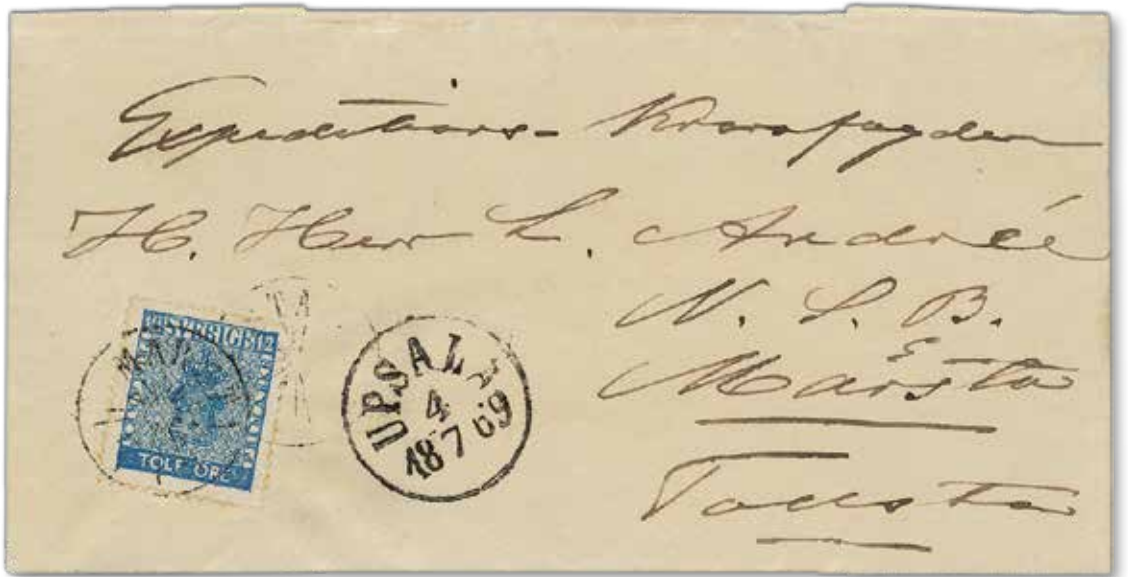 Expeditions- Kronofogden
H. Herr L. Andrée
N. S. B.
Märsta
Tollsta
12 SVERIGE 12
TOLF ÖRE
UPSALA
4
18 7 69